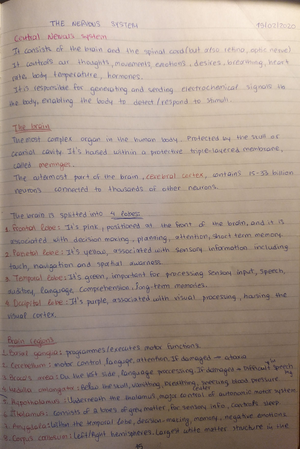 THE NERVOUS SYSTEM
15/07/2020
Central Nervous System
It consists of the brain and the spinal cord (but also retina, optic nerve)
It controls our thoughts, movements, emotions, desires, breathing, heart
rate, body temperature, hormones.
It is responsible for generating and sending electrochemical signals to
the body, enabling the body to detect/respond to stimuli.
The brain
The most complex organ in the human body. Protected by the skull or
cranial cavity. It's housed within a protective triple-layered membrane,
called meninges.
The outermost part of the brain, cerebral cortex, contains 15-33 billion
neurons connected to thousands of other neurons.
The brain is splitted into 4 lobes:
1. Frontal lobe: It's pink, positioned at the front of the brain, and it is
associated with decision making, planning, attention, short term memory.
2. Parietal lobe: It's yellow, associated with sensory information including
touch, navigation and spatial awarness.
3. Temporal lobe: It's green, important for processing sensory input, speech,
auditory language, comprehension, long-term memories.
4. Occipital lobe: It's purple, associated with visual processing, housing the
visual cortex.
Brain regions
Basal ganglia: programmes/executes motor functions.
Cerebellum: motor control, language, attention. If damaged → ataxia
Broca's area: On the left side, language processing. If damaged → difficulty speech
Medulla oblongata: Below the skull, vomiting, breathing, sneezing, blood pressure
Hypothalamus: Underneath the thalamus, major control of autonomic motor system
Thalamus: Consists of 2 sides of grey matter, for sensory info, controls sleep
Amygdala: Within the temporal lobe, decision making, memory, negative emotions.
Corpus callosum: Left/Right hemispheres. Largest white matter structure in the